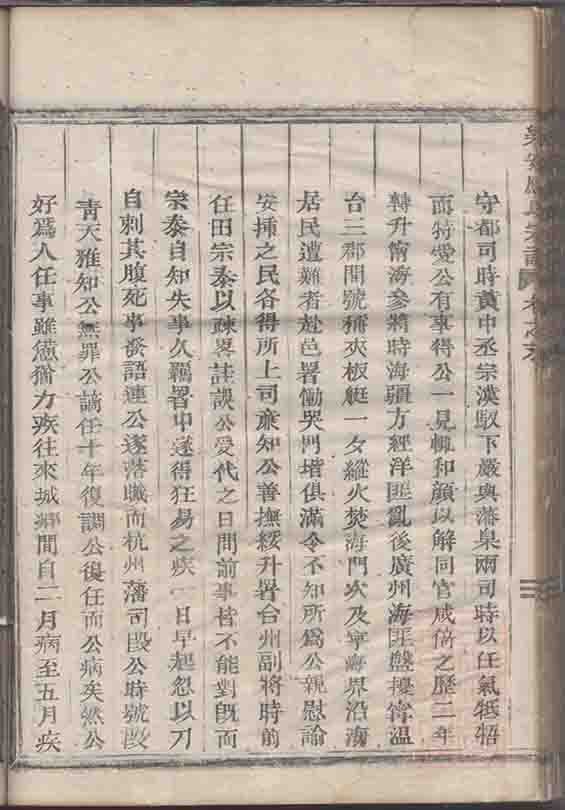 守都司時黃中丞宗漢馭下嚴與藩臬兩司時以任氣牴牾
而特愛公有事得公一見輒和顏以解同官咸倚之歷二年
轉升甯海參將時海疆方經洋匪亂後廣州海匪盤擾甯溫
台三郡間號稱夾板艇一夕縱火焚海門次及寧海界沿海
居民遭難者赴邑署慟哭門堦俱滿令不知所為公親慰諭
安揷之民各得所上司廉知公善撫綏升署台州副將時前
任田宗泰以疎畧詿誤公受代之日問前事皆不能對旣而
宗泰自知失事久羈署中遂得狂易之疾一日早起忽以刀
自刺其腹死事發語連公遂落職而杭州藩司段公時號段
青天雅知公無罪公謫任十年復調公復任而公病矣然公
好爲人任事雖憊猶力疾往來城鄉間自二月病至五月疾
氏宗譜 卷之